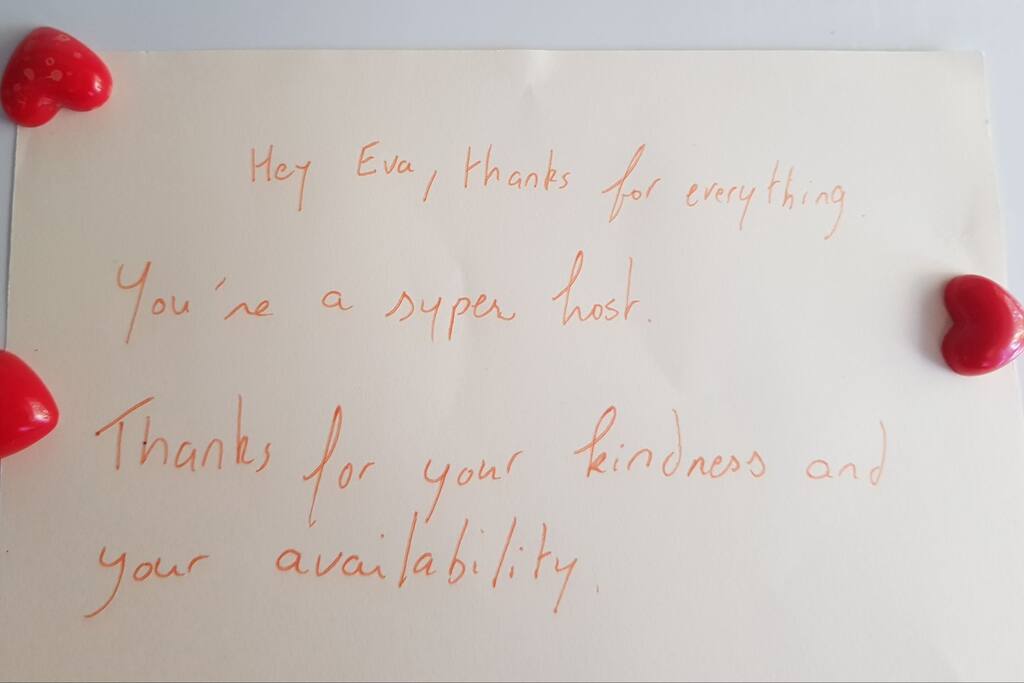 Hey Eva, thanks for everything.
You're a super host.
Thanks for your kindness and
your availability.